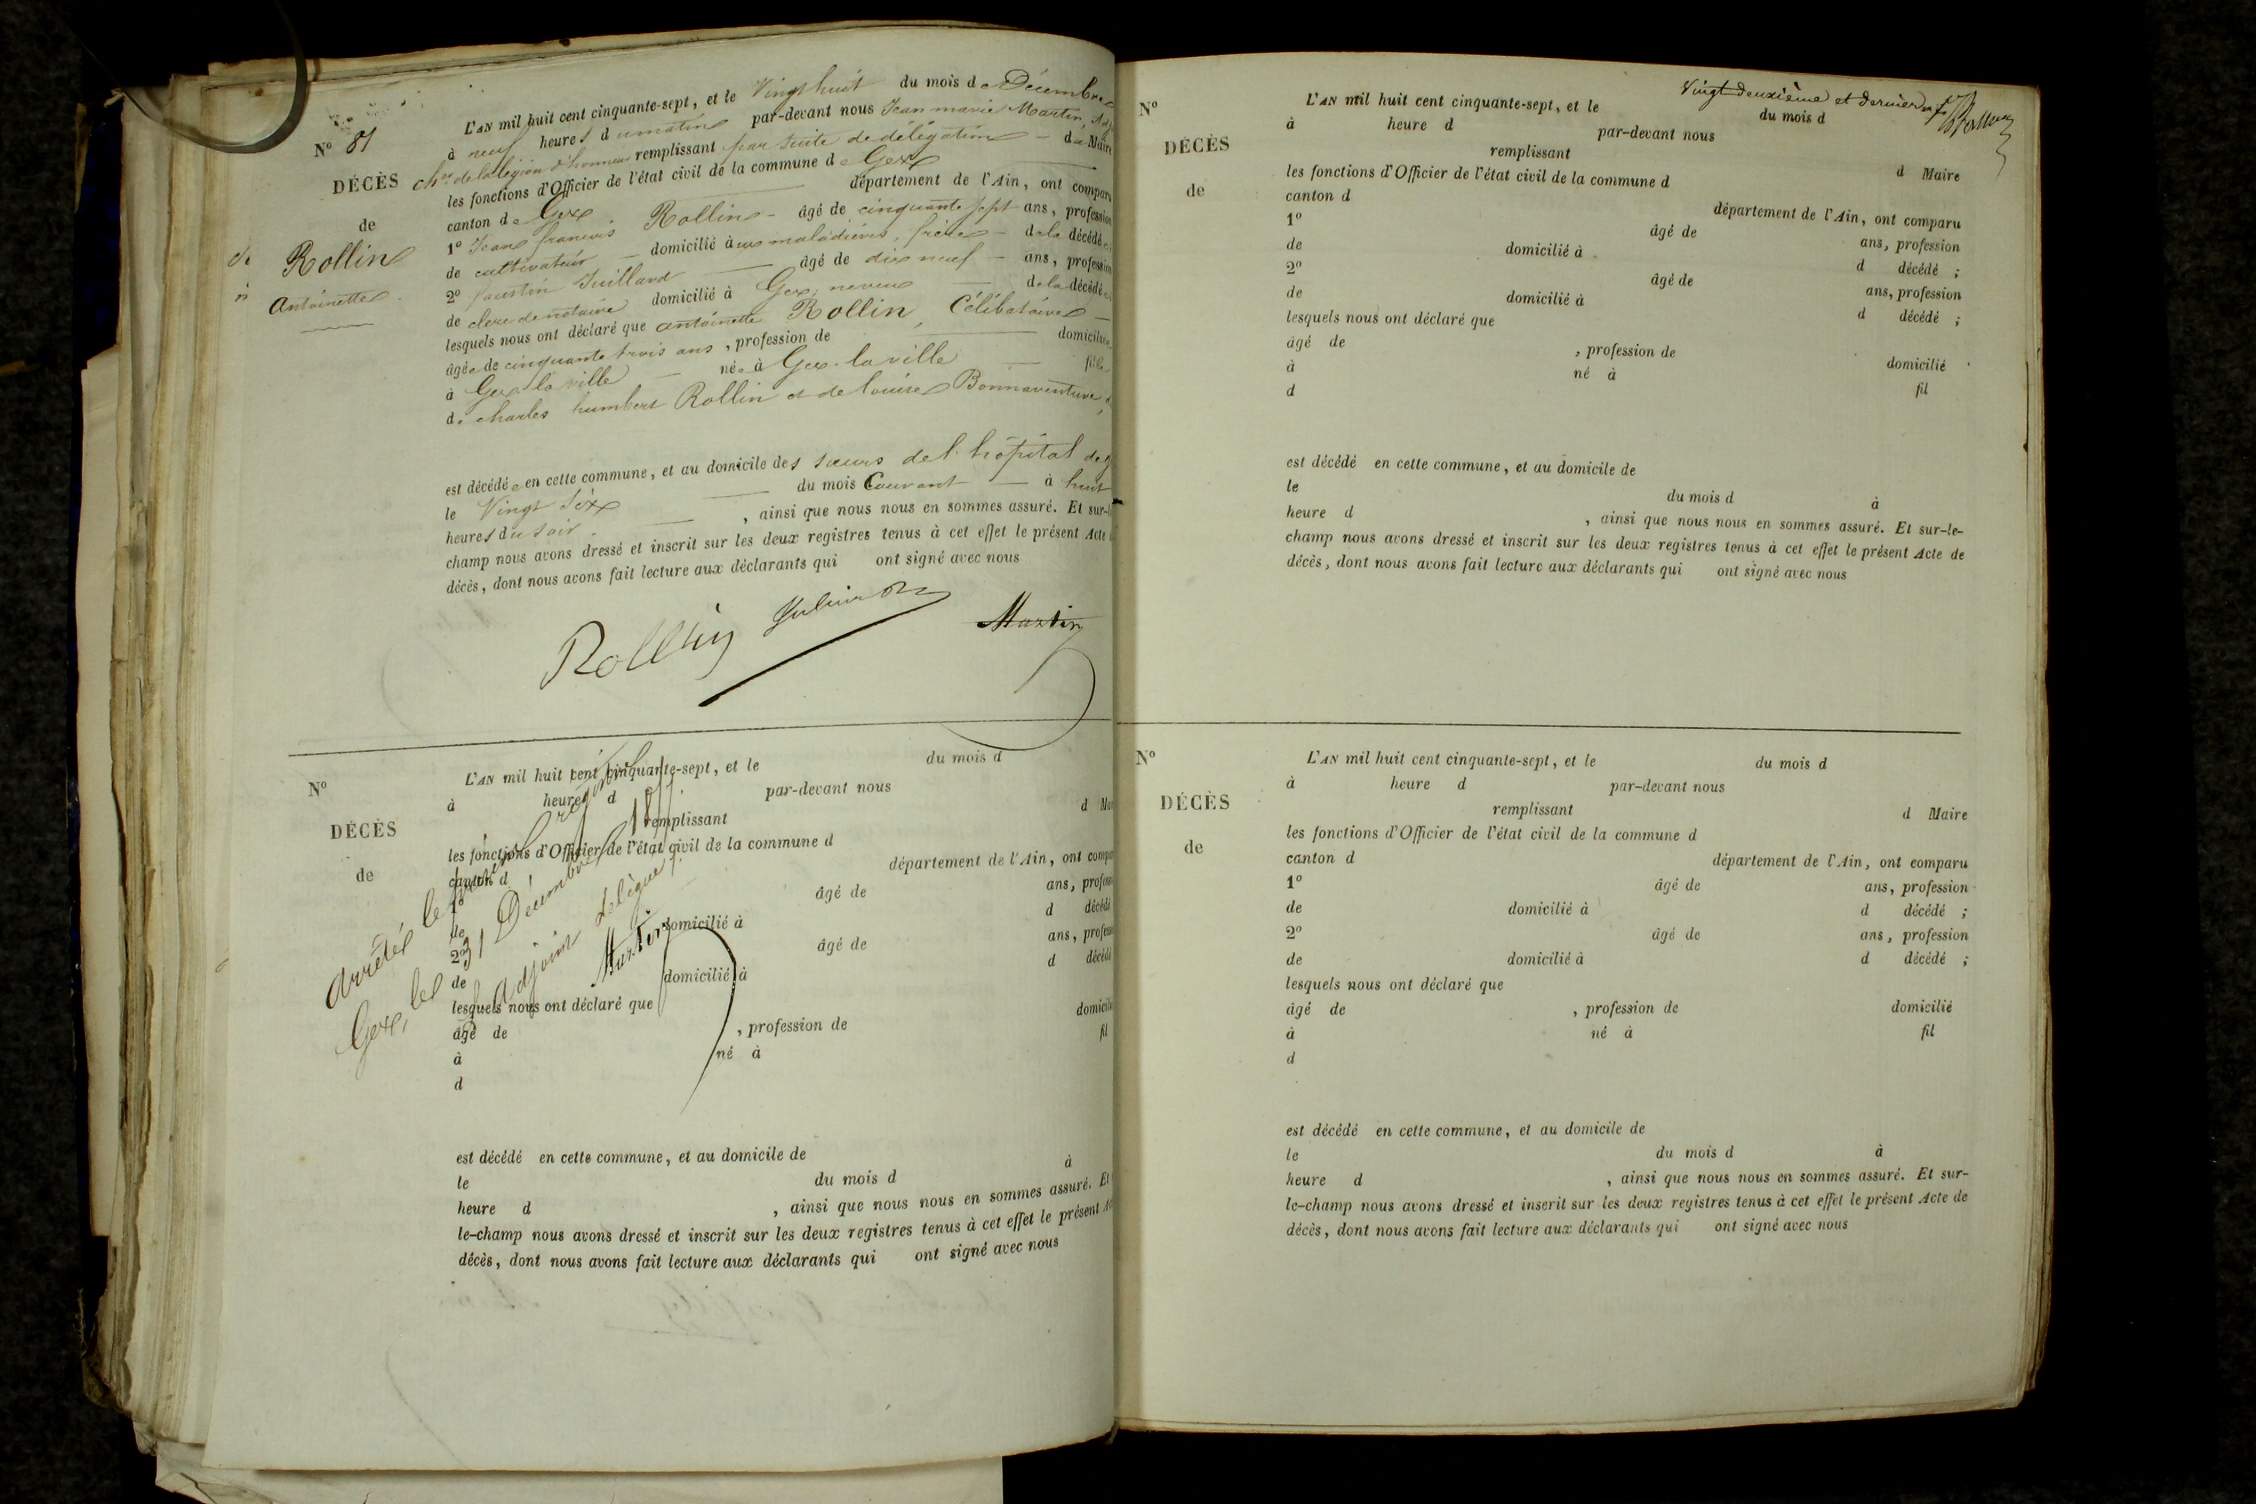 L'AN mil huit cent cinquante-sept, et le Vingt huit du mois de Décembre
à neuf heures du matin par-devant nous Jean marie Martin, Adj
chev de la légion d'honneur remplissant par suite de délégation du Maire
les fonctions d'Officier de l'état civil de la commune de Gex
canton de Gex département de l'Ain, ont comparu
1° Jean françois Rollin âgé de cinquante sept ans, profession
de cultivateur domicilié à aux maladières, frère de la décédée
2° faustin Juillard âgé de dix neuf ans, profession
de clerc de notaire domicilié à Gex, neveu de la décédée
lesquels nous ont déclaré que antoinette Rollin, Célibataire
âgée de cinquante trois ans, profession de domiciliée
à Gex la ville née à Gex-la ville fille
de charles humbert Rollin et de louise Bonnaventure
est décédée en cette commune, et au domicile des sœurs de l'hôpital de
le Vingt Six du mois Courant à huit
heures du soir, ainsi que nous nous en sommes assuré. Et sur-le
champ nous avons dressé et inscrit sur les deux registres tenus à cet effet le présent Acte
décès, dont nous avons fait lecture aux déclarants qui ont signé avec nous
Rollin
Martin
N° 81
DÉCÈS
de
Rollin
Antoinette
N°
DÉCÈS
de
L'AN mil huit cent cinquante-sept, et le du mois d
à heure d par-devant nous
remplissant d Mai
les fonctions d'Officier de l'état civil de la commune d
canton d département de l'Ain, ont compa
1° âgé de ans, profess
de domicilié à d décédé
2° âgé de ans, profess
de domicilié à d décédé
lesquels nous ont déclaré que
âgé de , profession de domicilié
à né à fil
d
est décédé en cette commune, et au domicile de
le du mois d à
heure d , ainsi que nous nous en sommes assuré. Et
le-champ nous avons dressé et inscrit sur les deux registres tenus à cet effet le présent A
décès, dont nous avons fait lecture aux déclarants qui ont signé avec nous
arrêté le présent registre
Gex, le 31 Décembre 1857.
L'adjoint délégué,
Martin
Vingt-deuxième et dernier
N°
DÉCÈS
de
L'AN mil huit cent cinquante-sept, et le du mois d
à heure d par-devant nous
remplissant d Maire
les fonctions d'Officier de l'état civil de la commune d
canton d département de l'Ain, ont comparu
1° âgé de ans, profession
de domicilié à d décédé ;
2° âgé de ans, profession
de domicilié à d décédé ;
lesquels nous ont déclaré que
âgé de , profession de domicilié
à né à fil
d
est décédé en cette commune, et au domicile de
le du mois d à
heure d , ainsi que nous nous en sommes assuré. Et sur-le-
champ nous avons dressé et inscrit sur les deux registres tenus à cet effet le présent Acte de
décès, dont nous avons fait lecture aux déclarants qui ont signé avec nous
N°
DÉCÈS
de
L'AN mil huit cent cinquante-sept, et le du mois d
à heure d par-devant nous
remplissant d Maire
les fonctions d'Officier de l'état civil de la commune d
canton d département de l'Ain, ont comparu
1° âgé de ans, profession
de domicilié à d décédé ;
2° âgé de ans, profession
de domicilié à d décédé ;
lesquels nous ont déclaré que
âgé de , profession de domicilié
à né à fil
d
est décédé en cette commune, et au domicile de
le du mois d à
heure d , ainsi que nous nous en sommes assuré. Et sur-
le-champ nous avons dressé et inscrit sur les deux registres tenus à cet effet le présent Acte de
décès, dont nous avons fait lecture aux déclarants qui ont signé avec nous